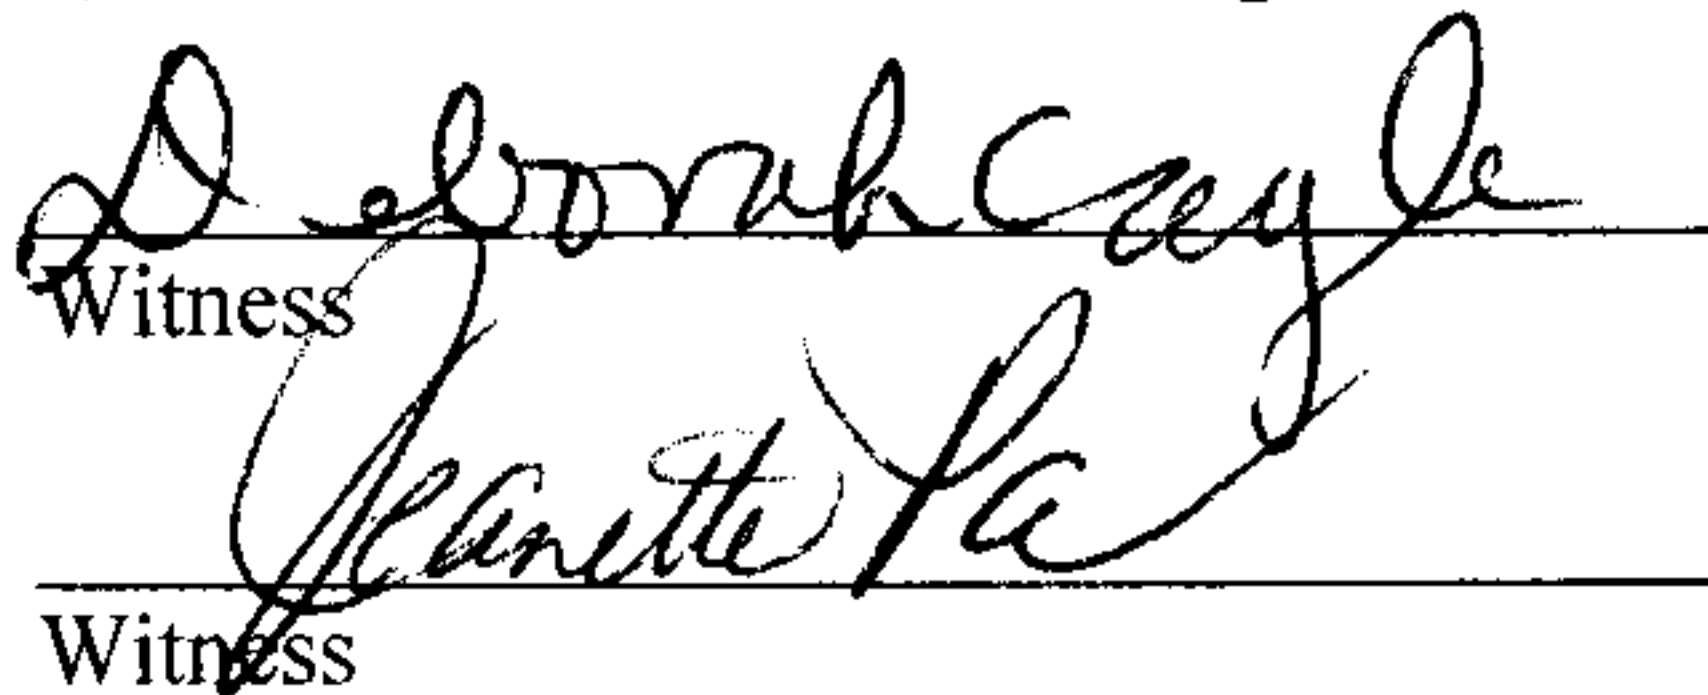 Deborah Cagle
Witness
Jeanette Pa
Witness